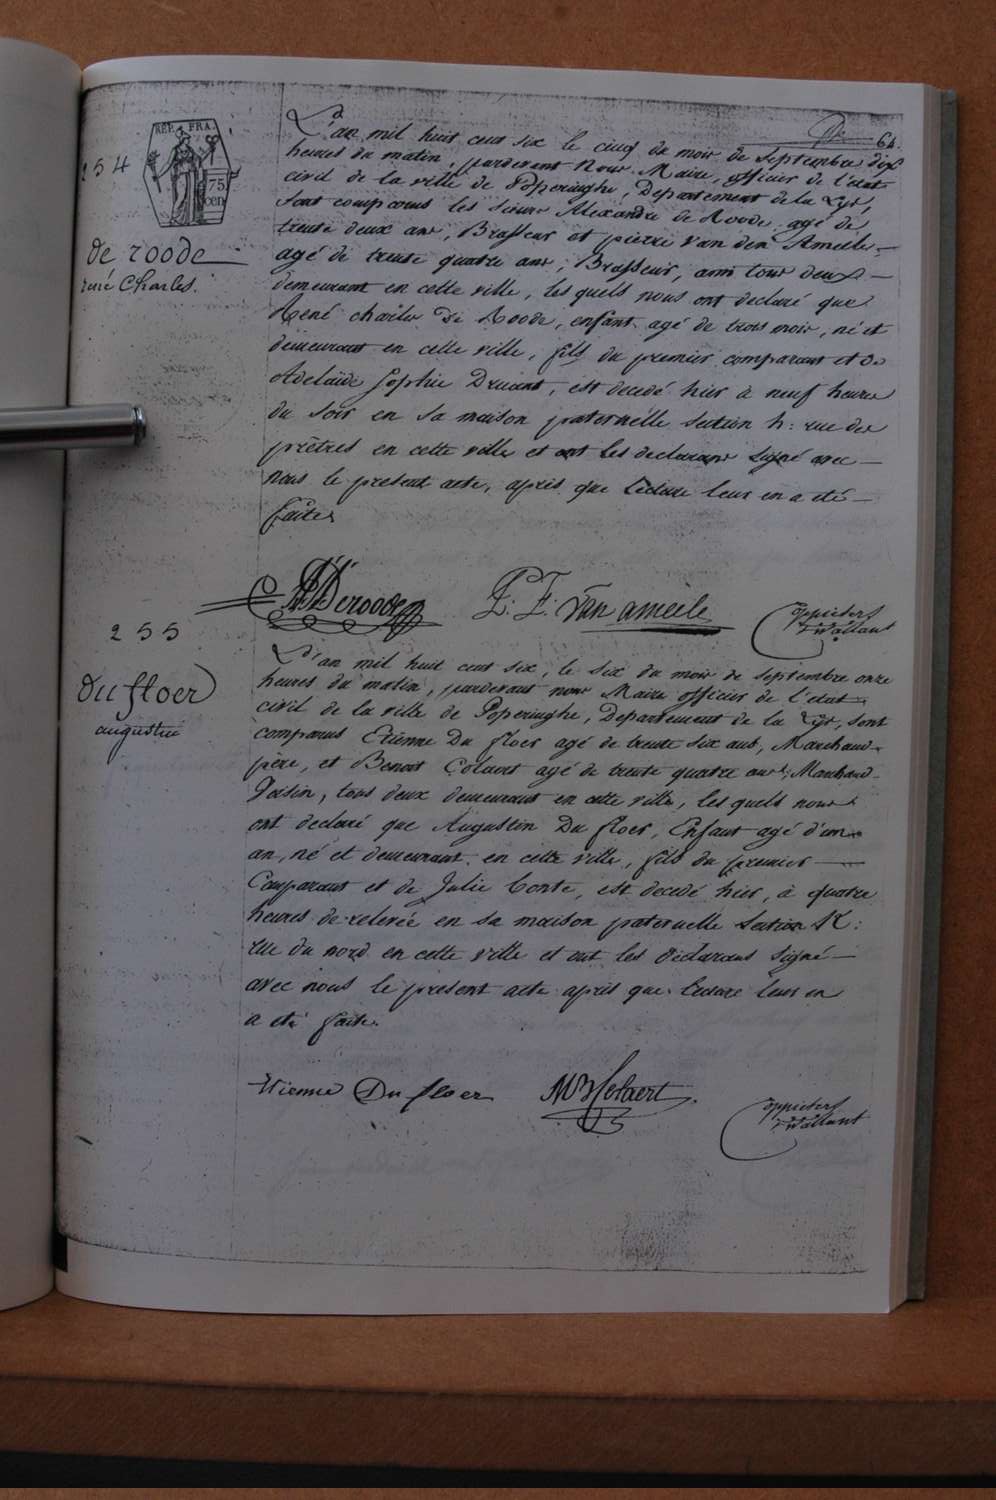 64.
REP. FRA.
75
cen
254
de roode
rené Charles.
L'an mil huit cent six le cinq du mois de Septembre dix
heures du matin, pardevant Nous Maire, officier de l'état
civil de la ville de Poperinghe, Departement de la Lys,
sont comparus les sieurs Alexandre de Roode, agé de
trente deux ans, Brasseur et pierre Van den Ameele
agé de trente quatre ans, Brasseur, ami tous deux
demeurant en cette ville, les quels nous ont declaré que
René charles De Roode, enfant agé de trois mois, né et
demeurant en cette ville, fils du premier comparant et de
Adelaïde Sophie Druant, est decedé hier à neuf heures
du soir en sa maison paternelle section h: rue des
prêtres en cette ville et ont les declarans signé avec
nous le present acte, après que lecture leur en a eté
faite,
Deroode P. F. Van ameile
255
du floer
augustin
L'an mil huit cent six, le six du mois de septembre onze
heures du matin, pardevant nous Maire officier de l'etat
civil de la ville de Poperinghe, Departement de la Lys, sont
comparus Etienne Du floer agé de trente six ans, Marchand
père, et Benoit Colaert agé de trente quatre ans, Marchand
Voisin, tous deux demeurant en cette ville, les quels nous
ont declaré que Augustin Du floer, Enfant agé d'un
an, né et demeurant en cette ville, fils du premier
Comparant et de Julie Conte, est decedé hier, à quatre
heures de relevée en sa maison paternelle Section K:
rue du nord en cette ville et ont les declarans signé
avec nous le present acte après que lecture leur en
a eté faite.
Etienne Du floer